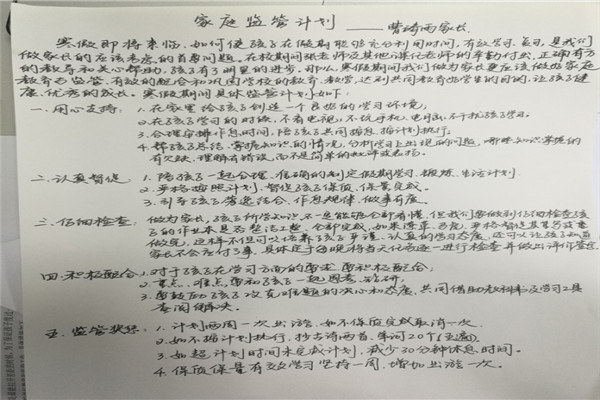 家庭监管计划 ——曹琦雨家长
寒假即将来临,如何使孩子在假期能够充分利用时间,有效学习、复习,是我们
做家长的应该考虑的首要问题。在校期间张老师及其他课任老师的辛勤付出、正确有方
的教导和关心帮助,孩子有了明显的进步。那么,寒假期间我们做为家长更应该做好家庭
教育与监管,有效的配合和巩固学校的教育、教学,达到共同教育好学生的目的,让孩子健
康、优秀的成长。寒假期间具体监管计划如下:
一、用心支持: 1.在家里给孩子创造一个良好的学习环境;
2.在孩子学习的时候,不看电视,不玩手机、电脑,不干扰孩子学习。
3.合理安排作息时间,陪孩子共同按息按计划执行;
4.帮孩子总结、掌握知识的情况,分析学习上出现的问题,哪些知识掌握的
有欠缺、理解有错误,而不是简单的批评或表扬。
二、认真督促: 1.陪孩子一起合理、准确的制定假期学习、锻炼、生活计划
2.严格按照计划,督促孩子保质、保量完成。
3.引导孩子劳逸结合,作息规律,做事有度。
三、仔细检查: 做为家长,孩子所学知识不一定能够全部看懂,但我们要做到仔细检查孩
子的作业本是否整洁工整,全部完成,如果潦草、马虎,严格督促其
做完,这样不但可以培养孩子严谨、认真的学习态度,还可以让孩子知道
家长不会应付了事,具体定于每晚将当天任务逐一进行检查并做出评价签字。
四、积极配合: 1.对于孩子在学习方面的需求需积极配合;
2.重点、难点,需和孩子一起思考、钻研;
3.要鼓励孩子攻克难题的决心和态度,共同借助教科书及学习工具
查阅解决。
五、监管奖惩: 1.计划两周一次出游,如不保质完成取消一次
2.如不按计划执行,抄古诗两首、单词20个(5遍)
3.如超计划时间未完成计划,减少30分钟休息时间。
4.保质保量有效学习坚持一周,增加出游一次。